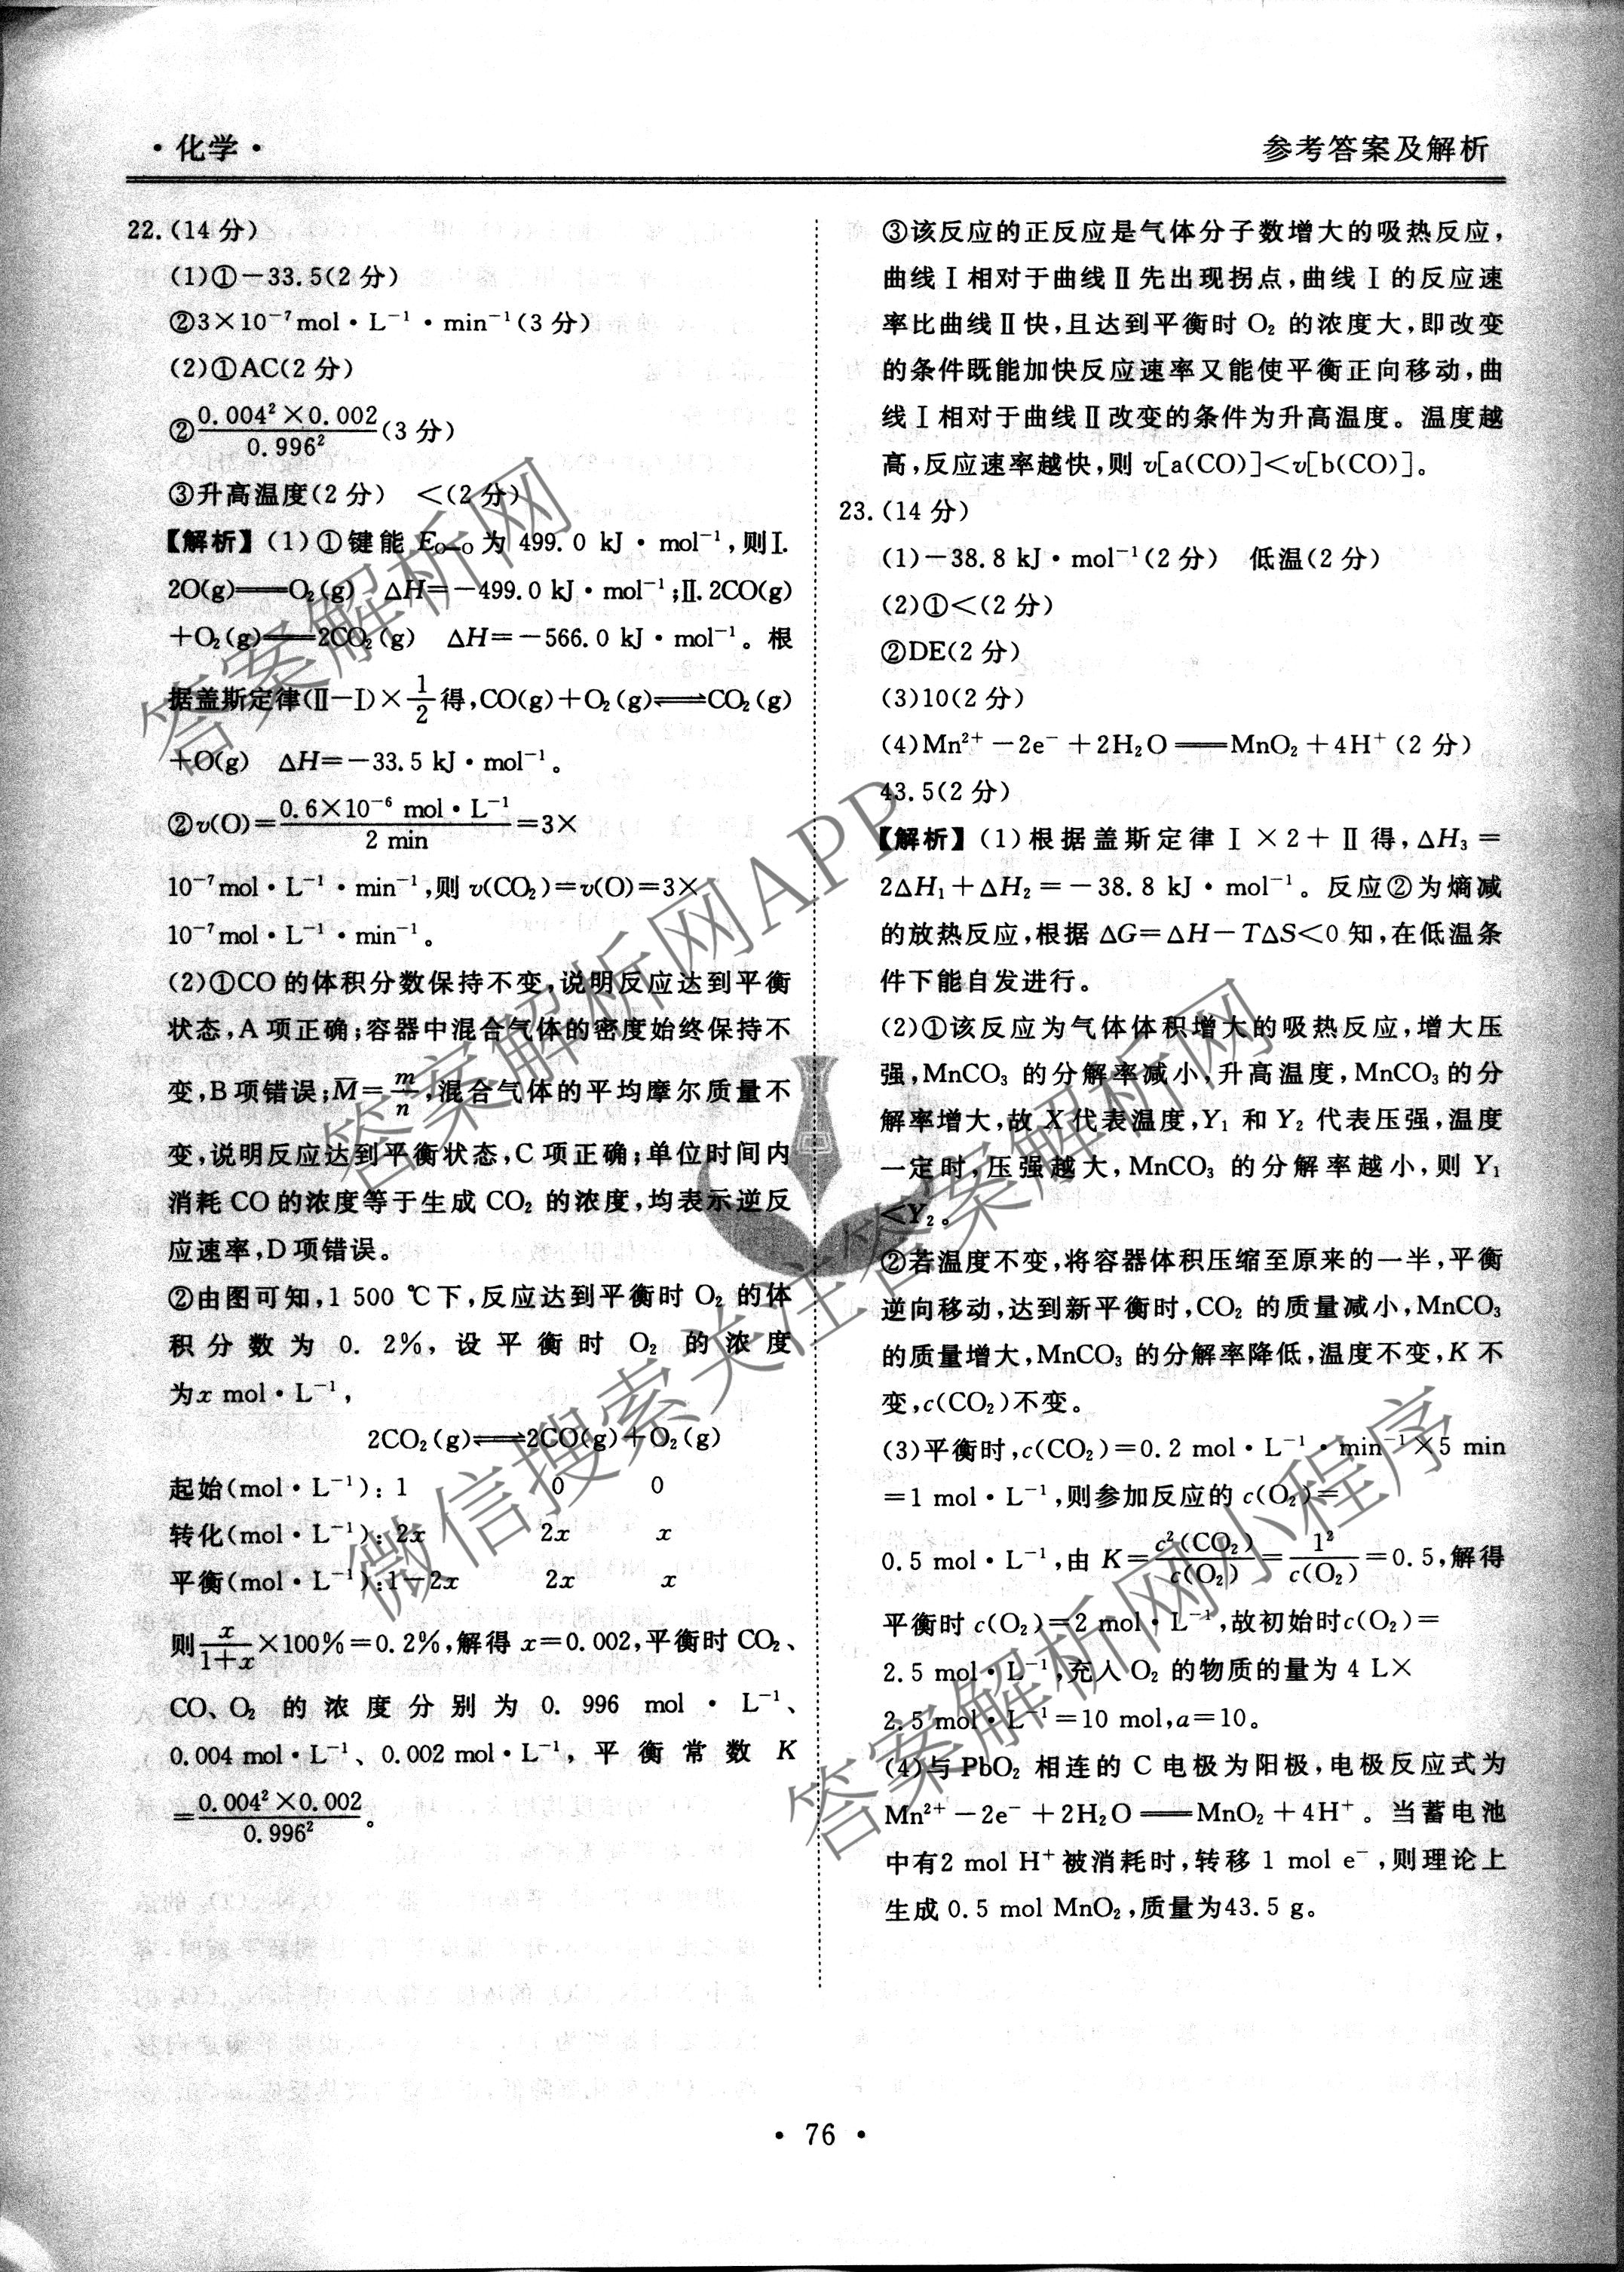 ·化学·
参考答案及解析
22.(14分)
(1)①-33.5(2分)
②3×10⁻⁷mol·L⁻¹·min⁻¹(3分)
(2)①AC(2分)
②0.004²×0.002/0.996²(3分)
③升高温度(2分) <(2分)
【解析】(1)①键能 E_{O=O}为 499.0 kJ·mol⁻¹,则Ⅰ.
2O(g)═══O₂(g) △H=-499.0 kJ·mol⁻¹;Ⅱ.2CO(g)
+O₂(g)═══2CO₂(g) △H=-566.0 kJ·mol⁻¹。根
据盖斯定律(Ⅱ-Ⅰ)×1/2得,CO(g)+O₂(g)⇌CO₂(g)
+O(g) △H=-33.5 kJ·mol⁻¹。
②v(O)=0.6×10⁻⁶ mol·L⁻¹/2 min=3×
10⁻⁷mol·L⁻¹·min⁻¹,则 v(CO₂)=v(O)=3×
10⁻⁷mol·L⁻¹·min⁻¹。
(2)①CO的体积分数保持不变,说明反应达到平衡
状态,A项正确;容器中混合气体的密度始终保持不
变,B项错误;M̅=m/n,混合气体的平均摩尔质量不
变,说明反应达到平衡状态,C项正确;单位时间内
消耗CO的浓度等于生成CO₂的浓度,均表示逆反
应速率,D项错误。
②由图可知,1 500 ℃下,反应达到平衡时O₂的体
积分数为0.2%,设平衡时O₂的浓度
为x mol·L⁻¹,
2CO₂(g)⇌2CO(g)+O₂(g)
起始(mol·L⁻¹):1 0 0
转化(mol·L⁻¹):2x 2x x
平衡(mol·L⁻¹):1-2x 2x x
则x/1+x×100%=0.2%,解得x=0.002,平衡时CO₂、
CO、O₂的浓度分别为0.996 mol·L⁻¹、
0.004 mol·L⁻¹、0.002 mol·L⁻¹,平衡常数K
=0.004²×0.002/0.996²。
③该反应的正反应是气体分子数增大的吸热反应,
曲线Ⅰ相对于曲线Ⅱ先出现拐点,曲线Ⅰ的反应速
率比曲线Ⅱ快,且达到平衡时O₂的浓度大,即改变
的条件既能加快反应速率又能使平衡正向移动,曲
线Ⅰ相对于曲线Ⅱ改变的条件为升高温度。温度越
高,反应速率越快,则v[a(CO)]<v[b(CO)]。
23.(14分)
(1)-38.8 kJ·mol⁻¹(2分) 低温(2分)
(2)①<(2分)
②DE(2分)
(3)10(2分)
(4)Mn²⁺-2e⁻+2H₂O═══MnO₂+4H⁺(2分)
43.5(2分)
【解析】(1)根据盖斯定律Ⅰ×2+Ⅱ得,△H₃=
2△H₁+△H₂=-38.8 kJ·mol⁻¹。反应②为熵减
的放热反应,根据△G=△H-T△S<0知,在低温条
件下能自发进行。
(2)①该反应为气体体积增大的吸热反应,增大压
强,MnCO₃的分解率减小,升高温度,MnCO₃的分
解率增大,故X代表温度,Y₁和Y₂代表压强,温度
一定时,压强越大,MnCO₃的分解率越小,则Y₁
<Y₂。
②若温度不变,将容器体积压缩至原来的一半,平衡
逆向移动,达到新平衡时,CO₂的质量减小,MnCO₃
的质量增大,MnCO₃的分解率降低,温度不变,K不
变,c(CO₂)不变。
(3)平衡时,c(CO₂)=0.2 mol·L⁻¹·min⁻¹×5 min
=1 mol·L⁻¹,则参加反应的c(O₂)=
0.5 mol·L⁻¹,由K=c²(CO₂)/c(O₂)=1²/c(O₂)=0.5,解得
平衡时c(O₂)=2 mol·L⁻¹,故初始时c(O₂)=
2.5 mol·L⁻¹,充入O₂的物质的量为4 L×
2.5 mol·L⁻¹=10 mol,a=10。
(4)与PbO₂相连的C电极为阳极,电极反应式为
Mn²⁺-2e⁻+2H₂O═══MnO₂+4H⁺。当蓄电池
中有2 mol H⁺被消耗时,转移1 mol e⁻,则理论上
生成0.5 mol MnO₂,质量为43.5 g。
·76·
答案解析网
答案解析网APP
微信搜索关注答案解析网
答案解析网小程序